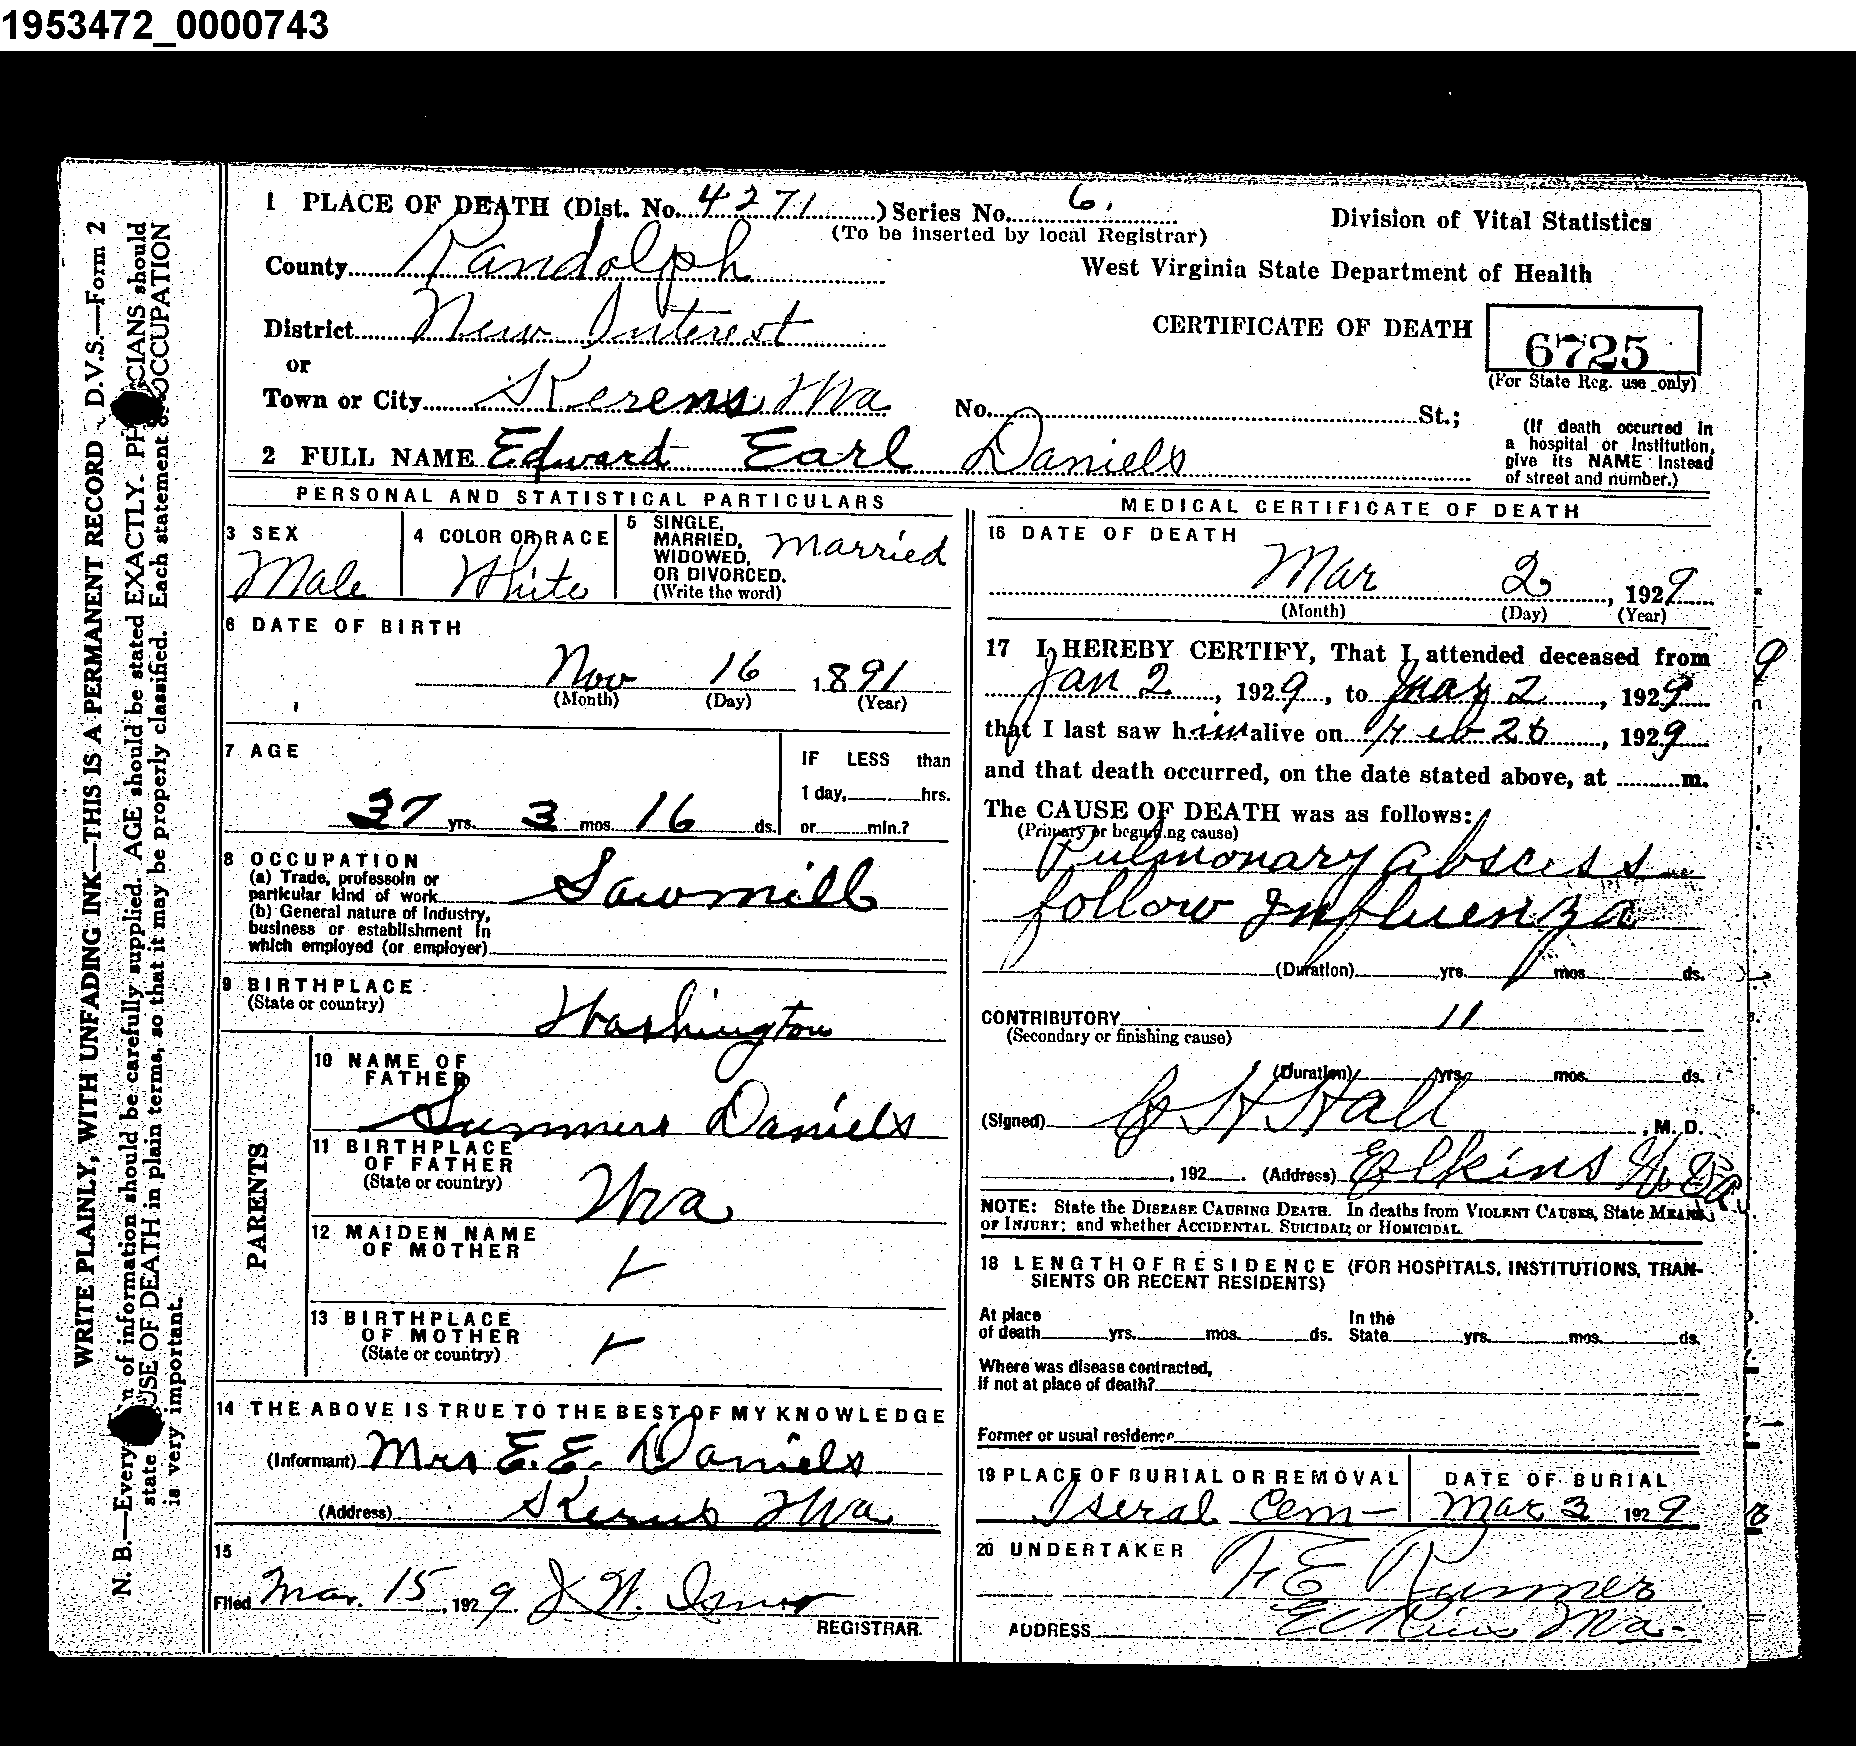 1953472_0000743
1 PLACE OF DEATH (Dist. No. 4271) Series No. 6.
(To be inserted by local Registrar)
Division of Vital Statistics
County Randolph
West Virginia State Department of Health
District New Interest
CERTIFICATE OF DEATH
6725
(For State Reg. use only)
or
Town or City Kerens Wva
No. St.;
(If death occurred in
a hospital or institution,
give its NAME instead
of street and number.)
2 FULL NAME Edward Earl Daniels
PERSONAL AND STATISTICAL PARTICULARS
3 SEX
Male
4 COLOR OR RACE
White
5 SINGLE,
MARRIED,
WIDOWED,
OR DIVORCED.
(Write the word)
Married
6 DATE OF BIRTH
Nov 16 1891
(Month) (Day) (Year)
7 AGE
37 yrs. 3 mos. 16 ds.
IF LESS than
1 day, hrs.
or min.?
8 OCCUPATION
(a) Trade, professoin or
particular kind of work Sawmill
(b) General nature of industry,
business or establishment in
which employed (or employer)
9 BIRTHPLACE
(State or country)
Washington
PARENTS
10 NAME OF
FATHER
Summers Daniels
11 BIRTHPLACE
OF FATHER
(State or country)
Wva
12 MAIDEN NAME
OF MOTHER
13 BIRTHPLACE
OF MOTHER
(State or country)
14 THE ABOVE IS TRUE TO THE BEST OF MY KNOWLEDGE
(Informant) Mrs E.E. Daniels
(Address) Kerens Wva
15
Filed Mar. 15, 1929 J W.
REGISTRAR.
MEDICAL CERTIFICATE OF DEATH
16 DATE OF DEATH
Mar 2, 1929
(Month) (Day) (Year)
17 I HEREBY CERTIFY, That I attended deceased from
Jan 2, 1929, to Mar 2, 1929
that I last saw him alive on Feb 26, 1929
and that death occurred, on the date stated above, at m.
The CAUSE OF DEATH was as follows:
(Primary or begu[n]ing cause)
Pulmonary abscess
follow Influenza
(Duration) yrs. 1 mos. ds.
CONTRIBUTORY 11
(Secondary or finishing cause)
(Duration) yrs. mos. ds.
(Signed) H Hall, M. D.
, 192 (Address) Elkins W. Va
NOTE: State the DISEASE CAUSING DEATH. In deaths from VIOLENT CAUSES, State MEANS
OF INJURY; and whether ACCIDENTAL SUICIDAL; or HOMICIDAL.
18 LENGTH OF RESIDENCE (FOR HOSPITALS, INSTITUTIONS, TRAN-
SIENTS OR RECENT RESIDENTS)
At place
of death yrs. mos. ds.
In the
State yrs. mos. ds.
Where was disease contracted,
if not at place of death?
Former or usual residence
19 PLACE OF BURIAL OR REMOVAL
Iseral Cem-
DATE OF BURIAL
Mar 3 1929
20 UNDERTAKER
F E Runner
ADDRESS Elkins Wva-
WRITE PLAINLY, WITH UNFADING INK—THIS IS A PERMANENT RECORD D.V.S.—Form 2
N. B.—Every of information should be carefully supplied. AGE should be stated EXACTLY. PH CIANS should
state USE OF DEATH in plain terms, so that it may be properly classified. Each statement of OCCUPATION
is very important.